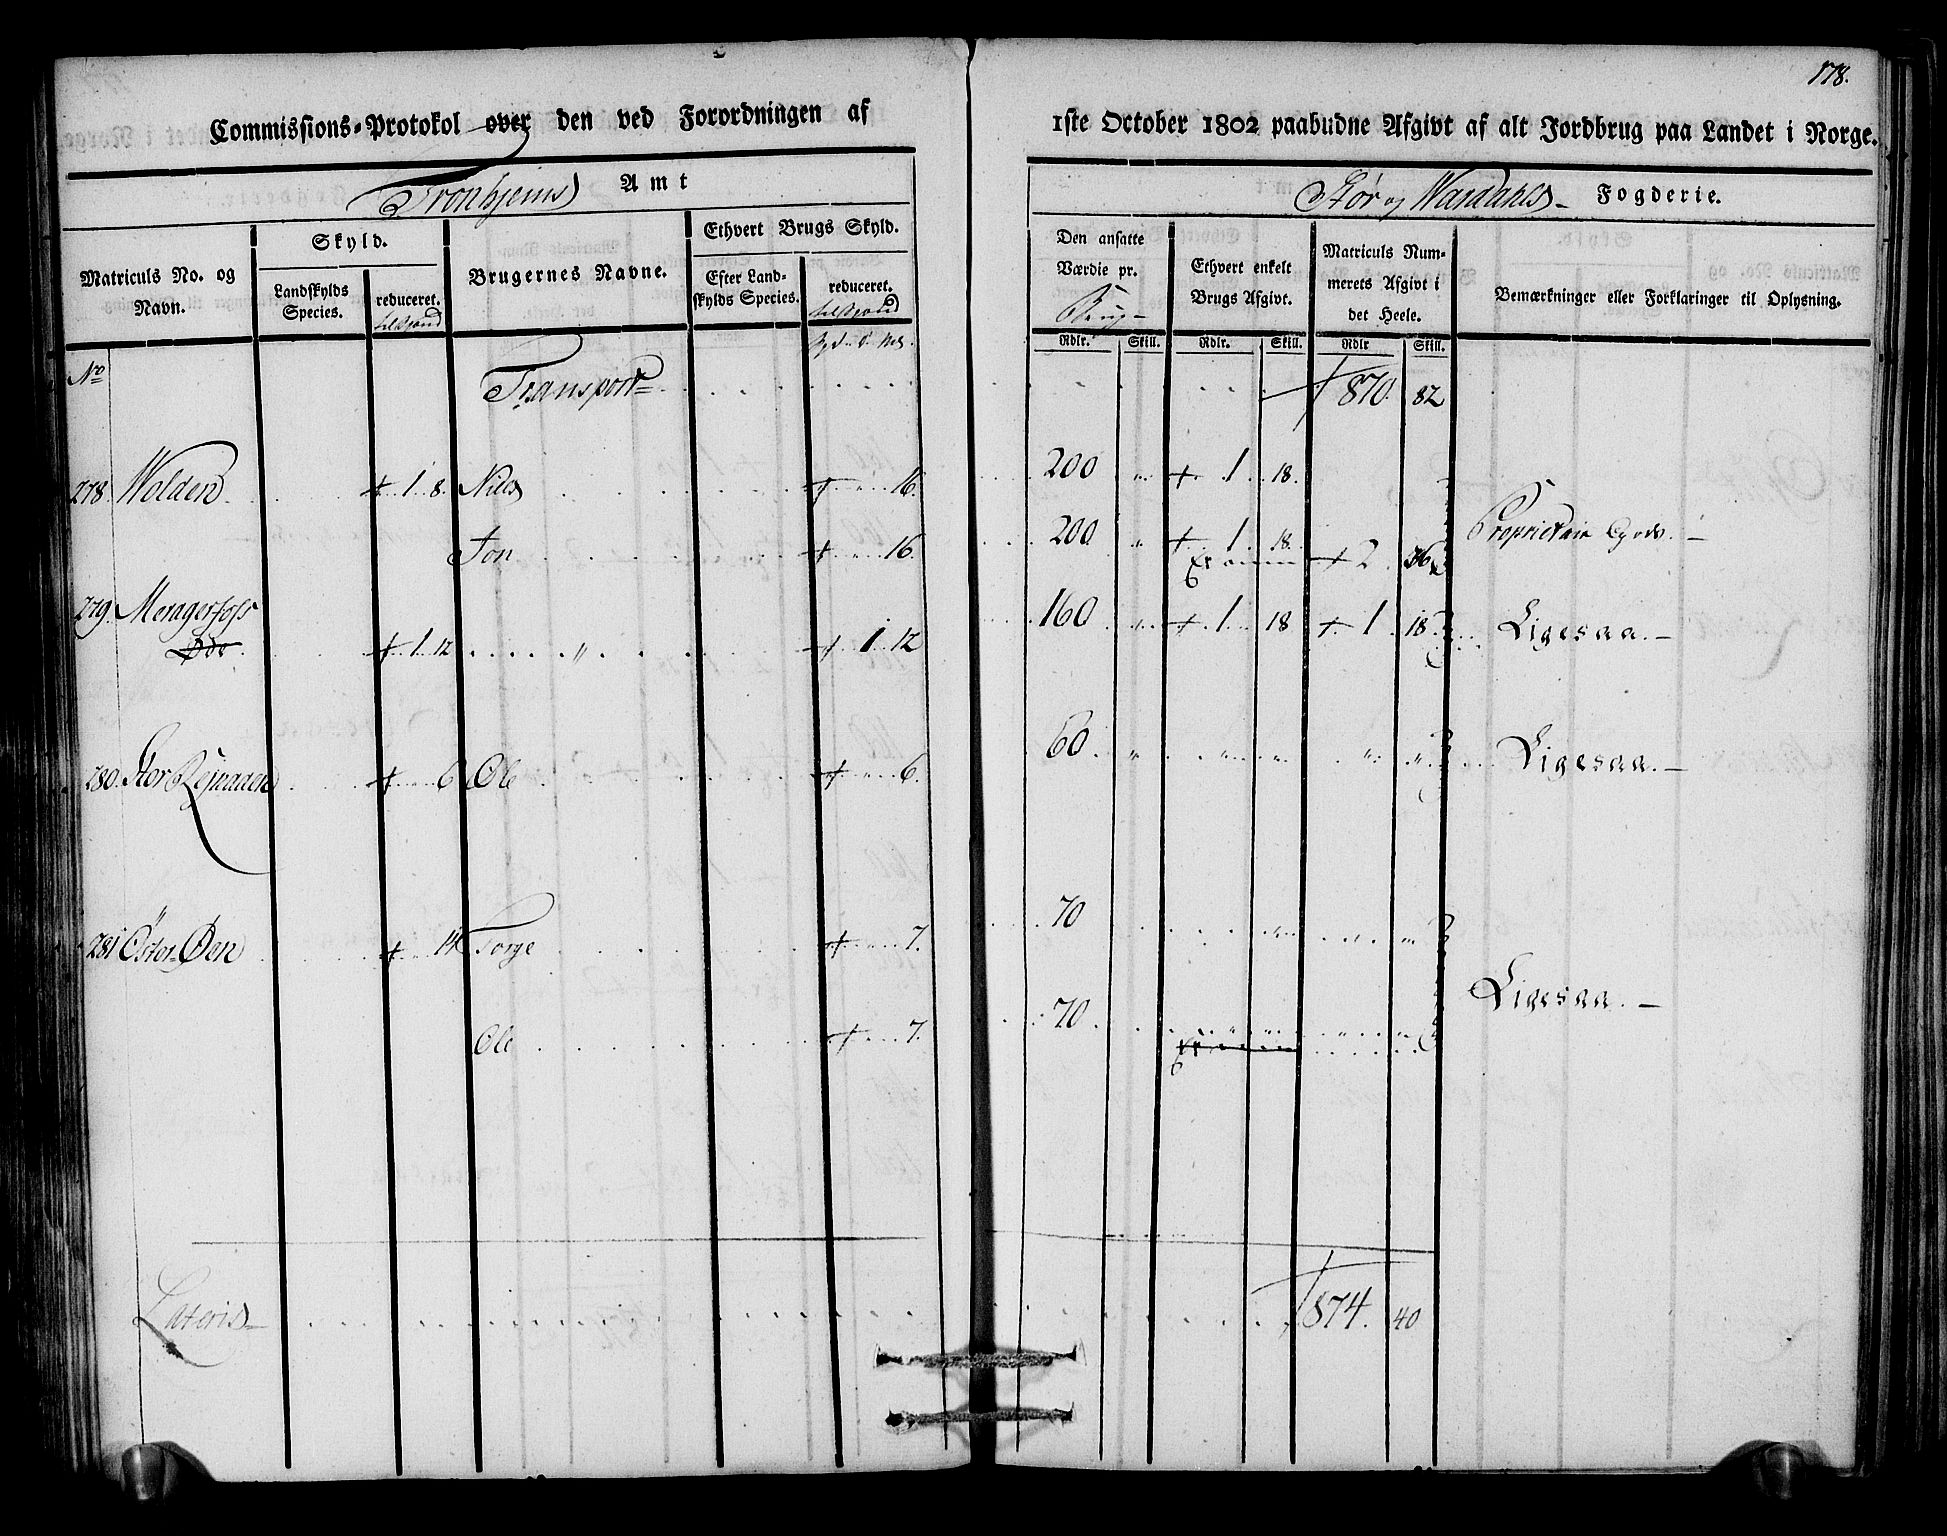 178.
Commissions-Protokol over den ved Forordningen af 1ste October 1802 paabudne Afgivt af alt Jordbrug paa Landet i Norge.
Tronhjems Amt
Stør og Wærdahls Fogderie.
Matriculs No. og Navn.
Skyld.
Landskylds Species.
reduceret.
Brugernes Navne.
Ethvert Brugs Skyld.
Efter Landskylds Species.
reduceret.
Den ansatte Værdie pr. Brug
Ethvert enkelt Brugs Afgivt.
Matriculs Nummerets Afgivt i det Heele.
Bemærkninger eller Forklaringer til Oplysning.
Rdlr. Skill. Rdlr. Skill. Rdlr Skill.
No
Transport 870. 82
278. Wolden 1 8. Niels 16. 200 " 1 18.
Jon 16. 200 " 1 18. Proprietair Gods.
2 36
279. Meragerfoss 160 " 1 18 1 18. Ligesaa.
Øde 1 12 " 1 12
280. Stor 6 Ole 6. 60 " " " Ligesaa.
281 Öster Øen 14 Torge 7. 70
Ligesaa.
Ole 7. 70
Lateris 874. 40